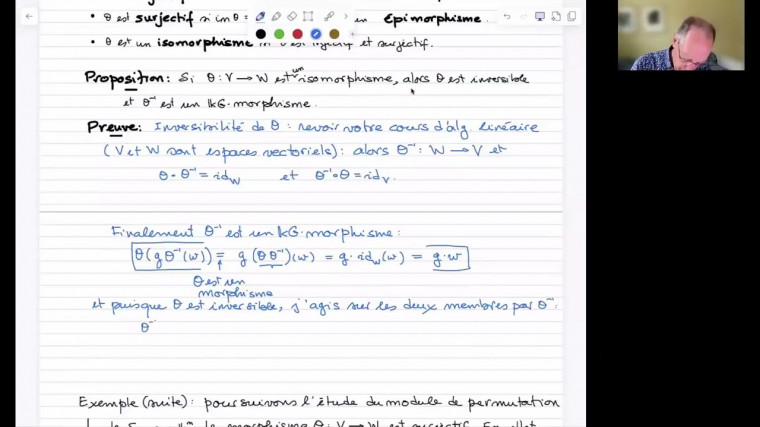 • θ est surjectif si im θ = un Epimorphisme.
• θ est un isomorphisme si θ est injectif et surjectif.
Proposition: Si θ: V → W est un isomorphisme, alors θ est inversible
et θ⁻¹ est un kG-morphisme.
Preuve: Inversibilité de θ: revoir votre cours d'alg. linéaire
(V et W sont espaces vectoriels): alors θ⁻¹: W → V et
θ∘θ⁻¹ = id_W et θ⁻¹∘θ = id_V.
Finalement θ⁻¹ est un kG-morphisme:
θ(g θ⁻¹(w)) = g (θ θ⁻¹)(w) = g· id_W(w) = g·w
↑
θ est un
morphisme
et puisque θ est inversible, j'agis sur les deux membres par θ⁻¹:
θ⁻
Exemple (suite): poursuivons l'étude du module de permutation
le morphisme θ: V → W est surjectif. En effet